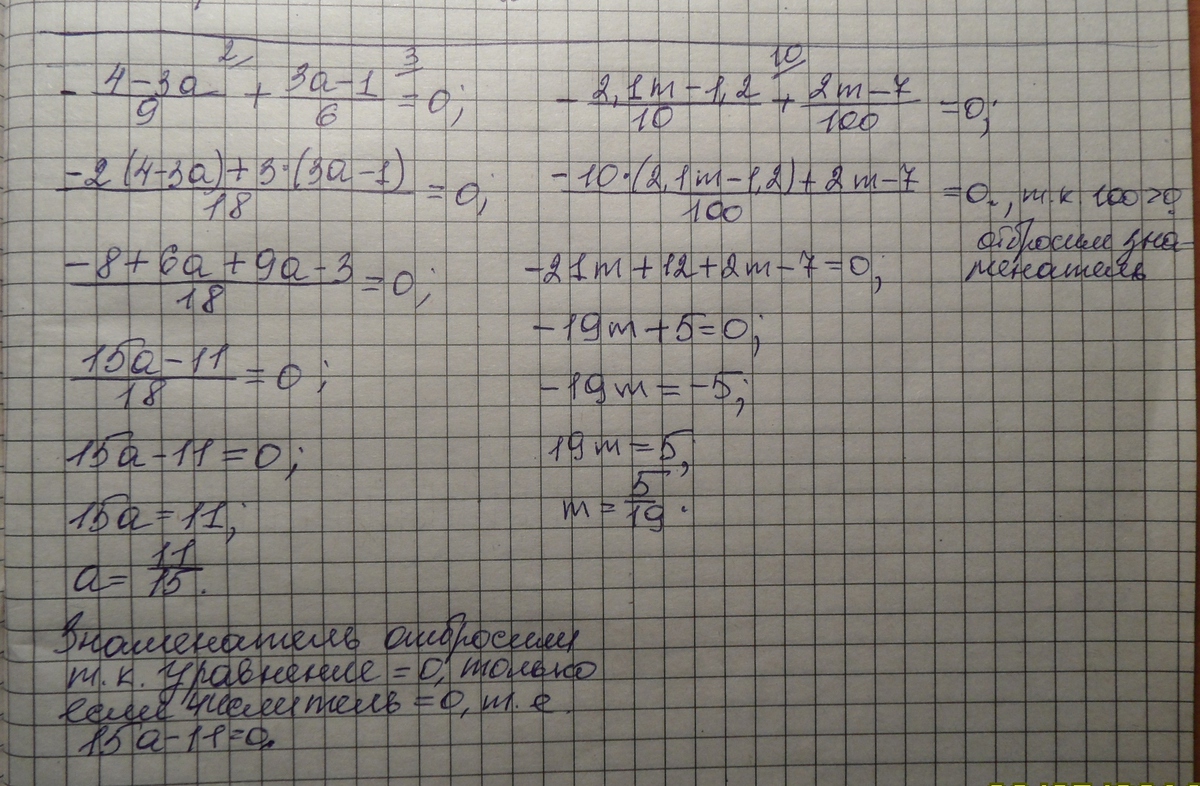 - (4-3a)/9 ²⁄ + (3a-1)/6 ³⁄ = 0;
(-2(4-3a)+3·(3a-1))/18 = 0;
(-8+6a+9a-3)/18 = 0;
(15a-11)/18 = 0;
15a-11=0;
15a=11;
a= 11/15.
Знаменатель отбросим
т.к. уравнение =0, только
если числитель =0, т.е.
15a-11=0.
- (2,1m-1,2)/10 ¹⁰⁄ + (2m-7)/100 = 0;
(-10·(2,1m-1,2)+2m-7)/100 = 0., т.к. 100>0
отбросим зна-
менатель
-21m+12+2m-7=0;
-19m+5=0;
-19m=-5;
19m=5;
m= 5/19.